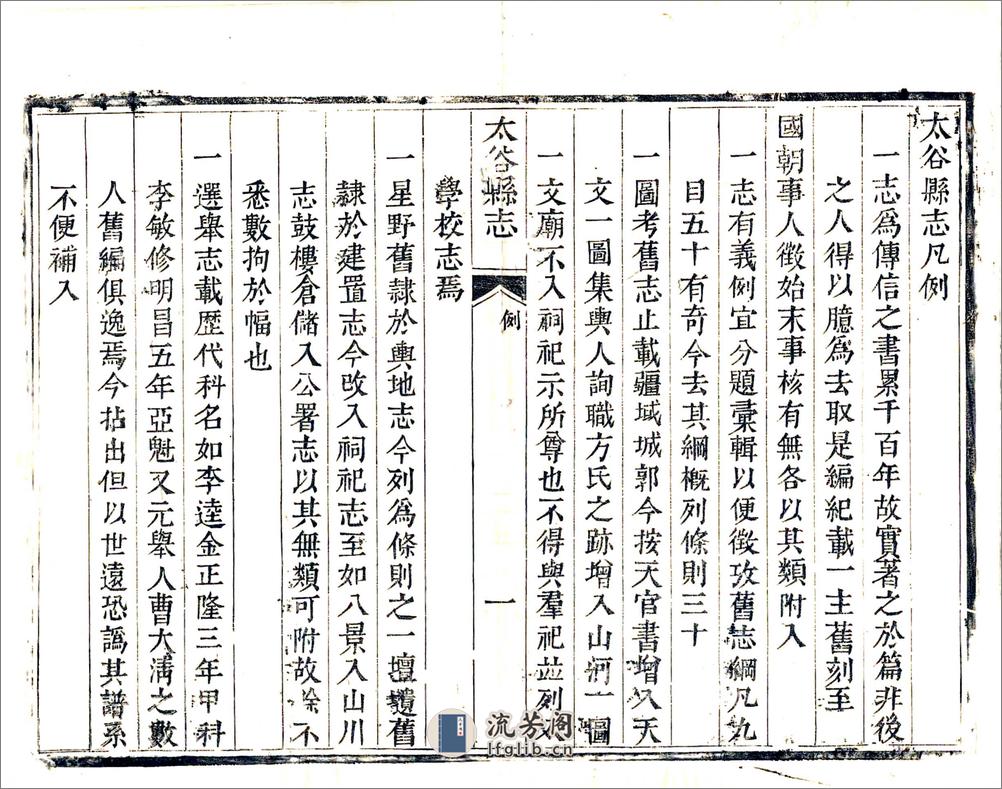 太谷縣志凡例
一志爲傳信之書累千百年故實著之於篇非後
之人得以臆爲去取是編紀載一主舊刻至
國朝事人徵始末事核有無各以其類附入
一志有義例宜分題彙輯以便徵攷舊志綱凡九
目五十有奇今去其綱概列條則三十
一圖考舊志止載疆域城郭今按天官書增入天
文一圖集輿人詢職方氏之跡增入山河一圖
一文廟不入祠祀示所尊也不得與羣祀並列入
太谷縣志
例
一
學校志焉
一星野舊隸於輿地志今列爲條則之一壇壝舊
隸於建置志今改入祠祀志至如八景入山川
志鼓樓倉儲入公署志以其無類可附故餘不
悉數拘於幅也
一選舉志載歷代科名如李逵金正隆三年甲科
李敏修明昌五年亞魁又元舉人曹大淸之數
人舊編俱逸焉今拈出但以世遠恐譌其譜系
不便補入
流芳阁
lfglib.cn